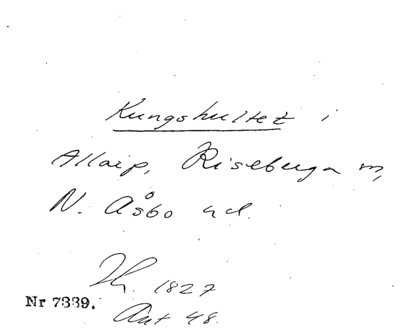 Kungshultet i
Allarp, Riseberga sn,
N. Åsbo hd.
Jh. 1827
Nr 7339.
Ant 48.